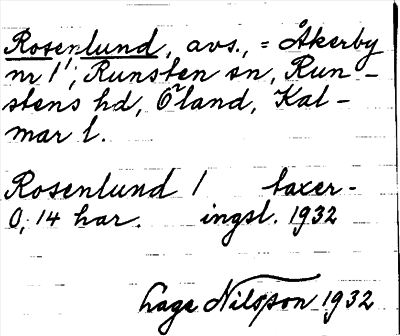 Rosenlund, avs., = Åkerby
nr 1; Runsten sn, Run-
stens hd, Öland, Kal-
mar l.
Rosenlund 1 taxer-
0,14 har. ingsl. 1932
Lage Nilsson 1932